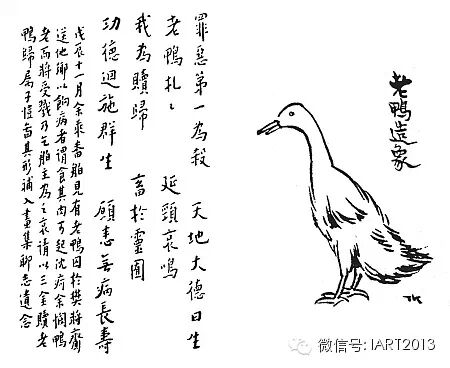 老鴨造象
TK
罪惡第一為殺　天地大德曰生
老鴨札〻　延頸哀鳴
我為贖歸　畜於靈囿
功德迴施群生　願悉無病長壽
戊辰十一月余乘番舶見有老鴨囚於樊將齎
送他鄉以餉病者謂食其肉可起沈疴余憫鴨
老而將受戮乃乞舶主為之哀請以三金贖老
鴨歸屬子愷畫其形補入畫集聊志遺念
微信号: IART2013